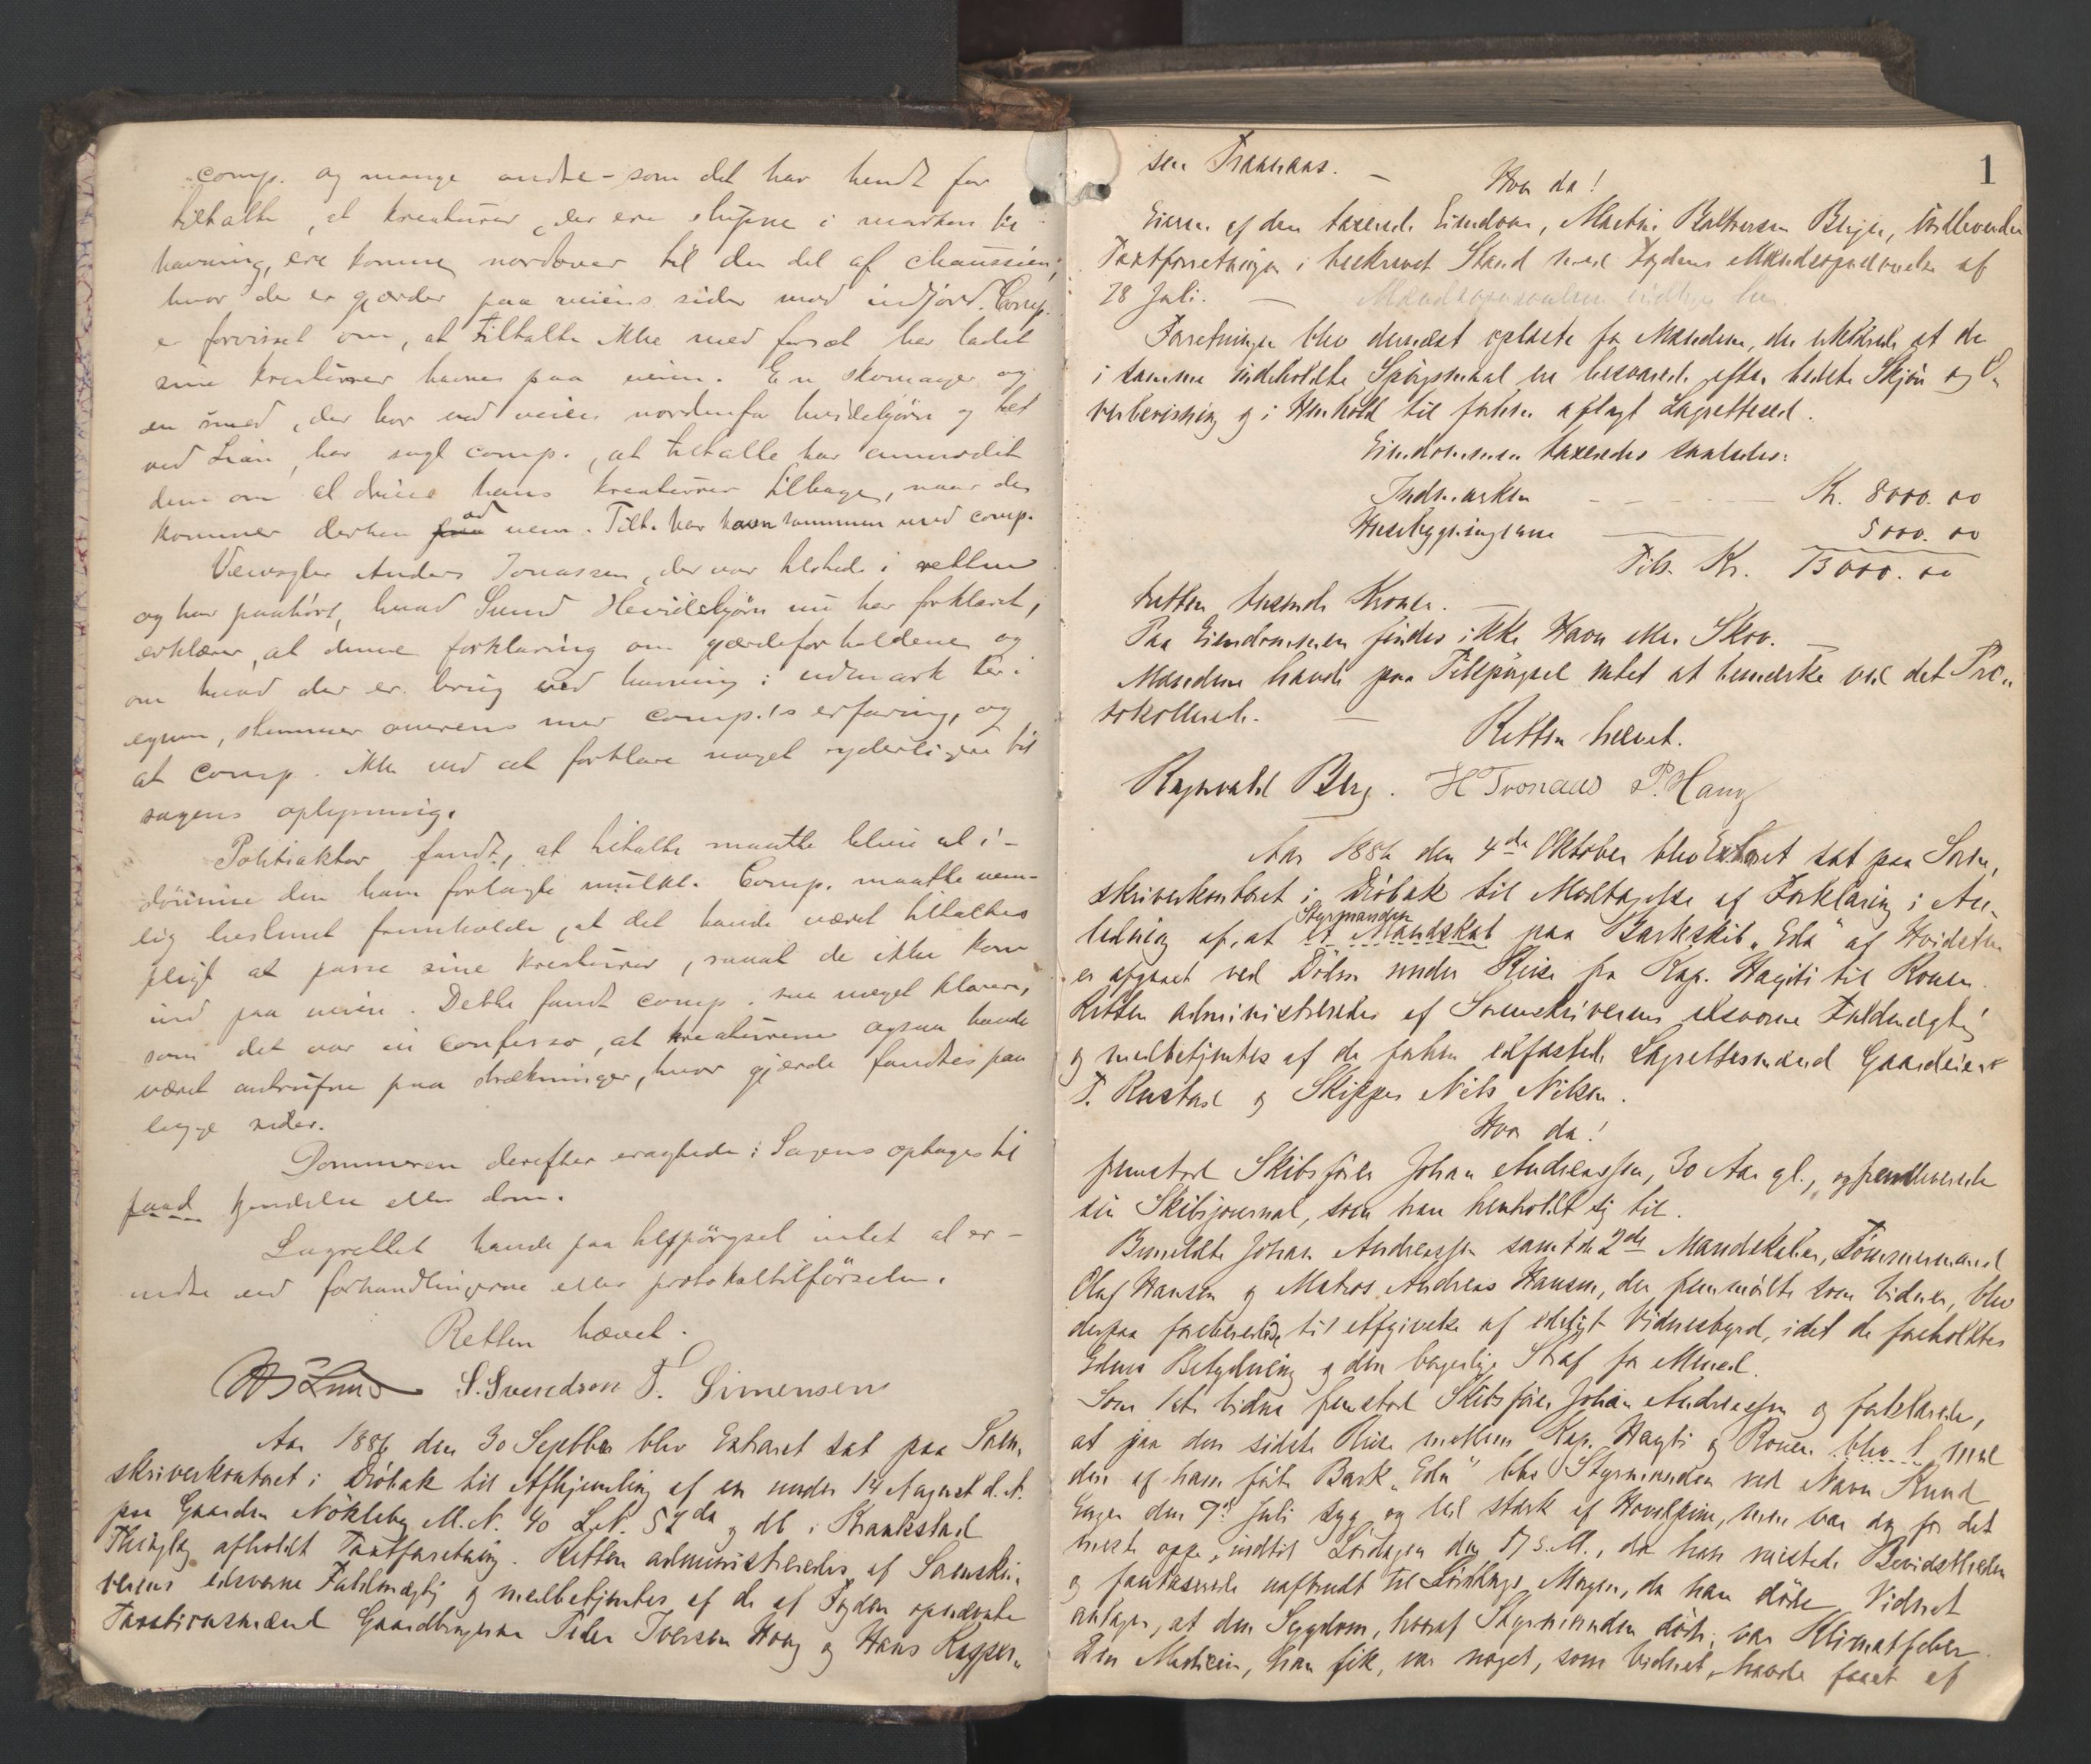 comp. og mange andre - som det har hendt for
tiltalte, at kreaturer, der ere slupne i marken til
havning, ere komne nordover til den del af chausséen,
hvor der er gjærder paa veiens sider mod indjord. Comp.
er forvisset om, at tiltalte ikke med forsæt har ladet
sine kreaturer havnes paa veien. En skomager og
en smed, der bor ved veien nordenfor Hvidebjørn og tæt
ved Lian, har sagt comp., at tiltalte har anmodet
dem om at drive hans kreaturer tilbage, naar de
kommer derhen ad veien. Tilt. har havn sammen med comp.
Veivogter Anders Jonassen, der var tilstede i retten
og har paahørt, hvad Lund Hevidebjørn nu har forklaret,
erklærer, at denne forklaring om gjærdeforholdene og
om hvad der er brug ved havning i udmark der i
egnen, stemmer overens med comp.'s erfaring, og
at comp. ikke ved at forklare noget yderligere til
sagens oplysning.
Politiaktor fandt, at tiltalte maatte blive at i-
dømme den ham forlagte mulkt. Comp. maatte nem-
lig bestemt fremholde, at det havde været tiltaltes
pligt at passe sine kreaturer, saaat de ikke kom
ind paa veien. Dette fandt comp. saa meget klarere,
som det var in confesso, at kreaturene ogsaa havde
været antrufne paa strækninger, hvor gjerde fandtes paa
begge sider.
Dommeren derefter eragtede: Sagens optages til
kjendelse eller dom.
Lagrettet havde paa tilspörgsel intet at er-
indre ved forhandlingerne eller protokoltilförselen.
Retten hævet.
S. Svendsen T. Simensen
Aar 1886 den 30 Septbr blev Extraret sat paa Soren-
skriverkontoret i Dröbak til Afhjemling af en under 14 August d. A.
paa Gaarden Nökleby M. N. 40 L. N. 52 da og db i Kraakstad
Thinglag afholdt Taxtforretning. Retten administreredes af Sorenskri-
verens edsvorne Fuldmægtig og medbetjentes af de af Fogden opnævnte
Taxationsmænd Gaardbrugerne Peder Iversen Haug og Hans Kasper-
1
sen Tronaas. - Hvor da!
Eieren af den taxerede Eiendom, Martin Baltersen Berger, indleverede
Taxtforretningen i beskrevet Stand med Fogdens Mandsopnævnelse af
28 Juli. - Mandsopnævnelsen indtages her.
Forretningen blev dernæst oplæste for Mændene, der erklærede at de
i samme indeholdte Spörgsmaal ere besvarede efter bedste Skjön og O-
verbevisning og i Henhold til forhen aflagt Lagretteed.
Eiendommen taxeredes saaledes:
Indmarken - Kr. 8000.00
Husebygningerne 5000.00
Tils. Kr. 13000.00
tretten tusende Kroner. -
Paa Eiendommen findes ikke Havn eller Skov. -
Mændene havde paa Tilspörgsel intet at bemerke ved det Pro-
tokollerede. -
Retten hævet.
Ragnvald Berg. H Tronaas P. Haug
Aar 1886 den 4de Oktober blev Extraret sat paa Soren-
skriverkontoret i Dröbak til Modtagelse af Forklaring i An-
ledning af, at Styrmanden et Mandskab paa Barkskib "Eda" af Hvidsten
er afgaaet ved Döden under Reise fra Kap. Hayti til Rouen.
Retten administreredes af Sorenskriverens edsvorne Fuldmægtig
og medbetjentes af de forhen edfæstede Lagrettesmænd Gaardeier
T. Rustad og Skipper Nils Nilsen.
Hvor da!
fremstod Skibsförer Johan Andreassen, 30 Aar gl., og fremleverede
sin Skibsjournal, som han henholdt sig til.
Bemeldte Johan Andreassen samt de 2de Mandskaber, Tömmermand
Olaf Hansen og Matros Andreas Hansen, der fremmödte som Vidner, blev
derpaa forberedede til Afgivelse af edeligt Vidnesbyrd, idet de foreholdtes
Edens Betydning og den borgerlige Straf for Mened.
Som 1ste Vidne fremstod Skibsförer Johan Andreassen og forklarede,
at paa den sidste Reise mellem Kap. Hayti og Rouen blev d. med
den af ham förte Bark "Eda" blev Styrmanden ved Navn Knud
Enger den 9de Juli syg og led stærk af Hovedpine, men var dog for det
meste oppe, indtil Lördagen den 17 s. M., da han mistede Bevidstheden
og fantaserede uafbrudt til Morgen, da han döde. Vidnet
antager, at den Sygdom, hvoraf Styrmanden döde, var Klimatfeber.
Den Medicin, han fik, var noget, som Vidnet havde faaet af